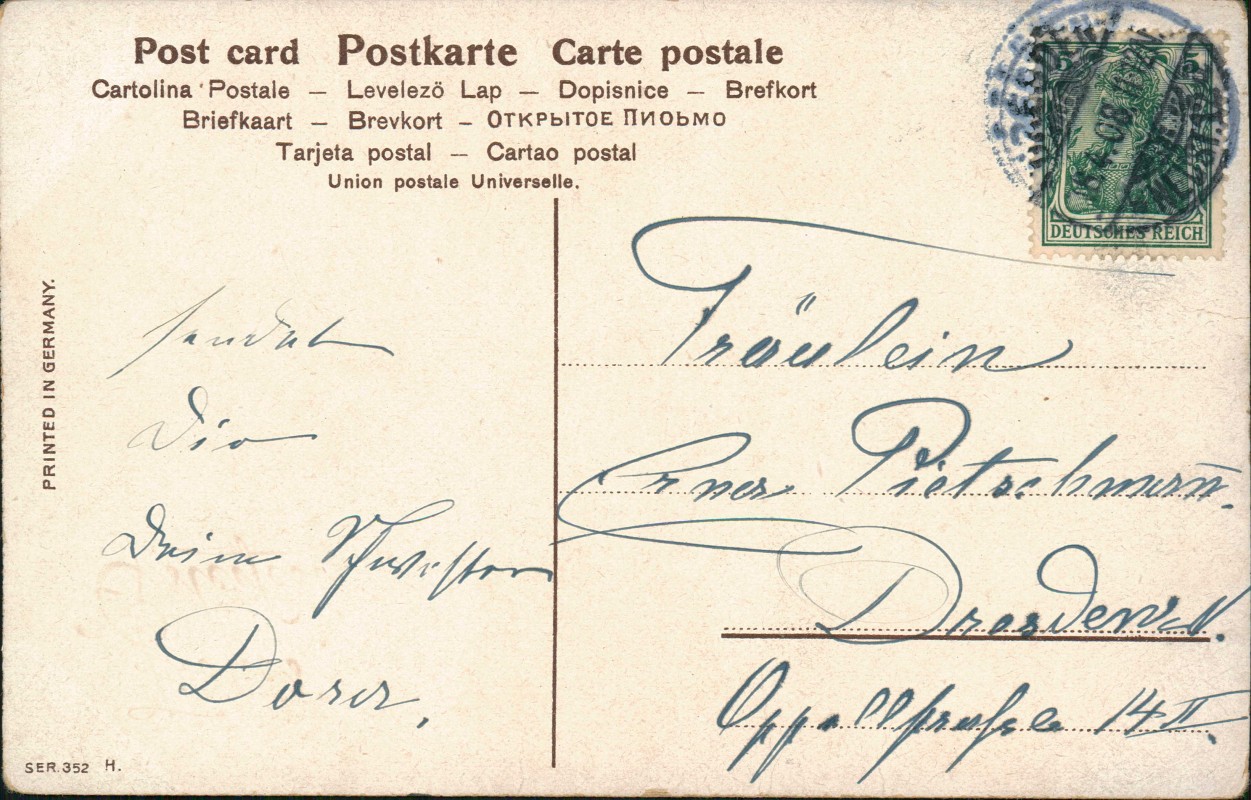 Post card Postkarte Carte postale
Cartolina Postale — Levelező Lap — Dopisnice — Brefkort
Briefkaart — Brevkort — ОТКРЫТОЕ ПИОЬМО
Tarjeta postal — Cartao postal
Union postale Universelle.
5 5
DEUTSCHES REICH
PRINTED IN GERMANY.
sendet
Dir
Deine Schwester
Dora.
Fräulein
Erna Pietschmann.
Dresden N.
Oppellstrasse 14 II.
SER. 352 H.